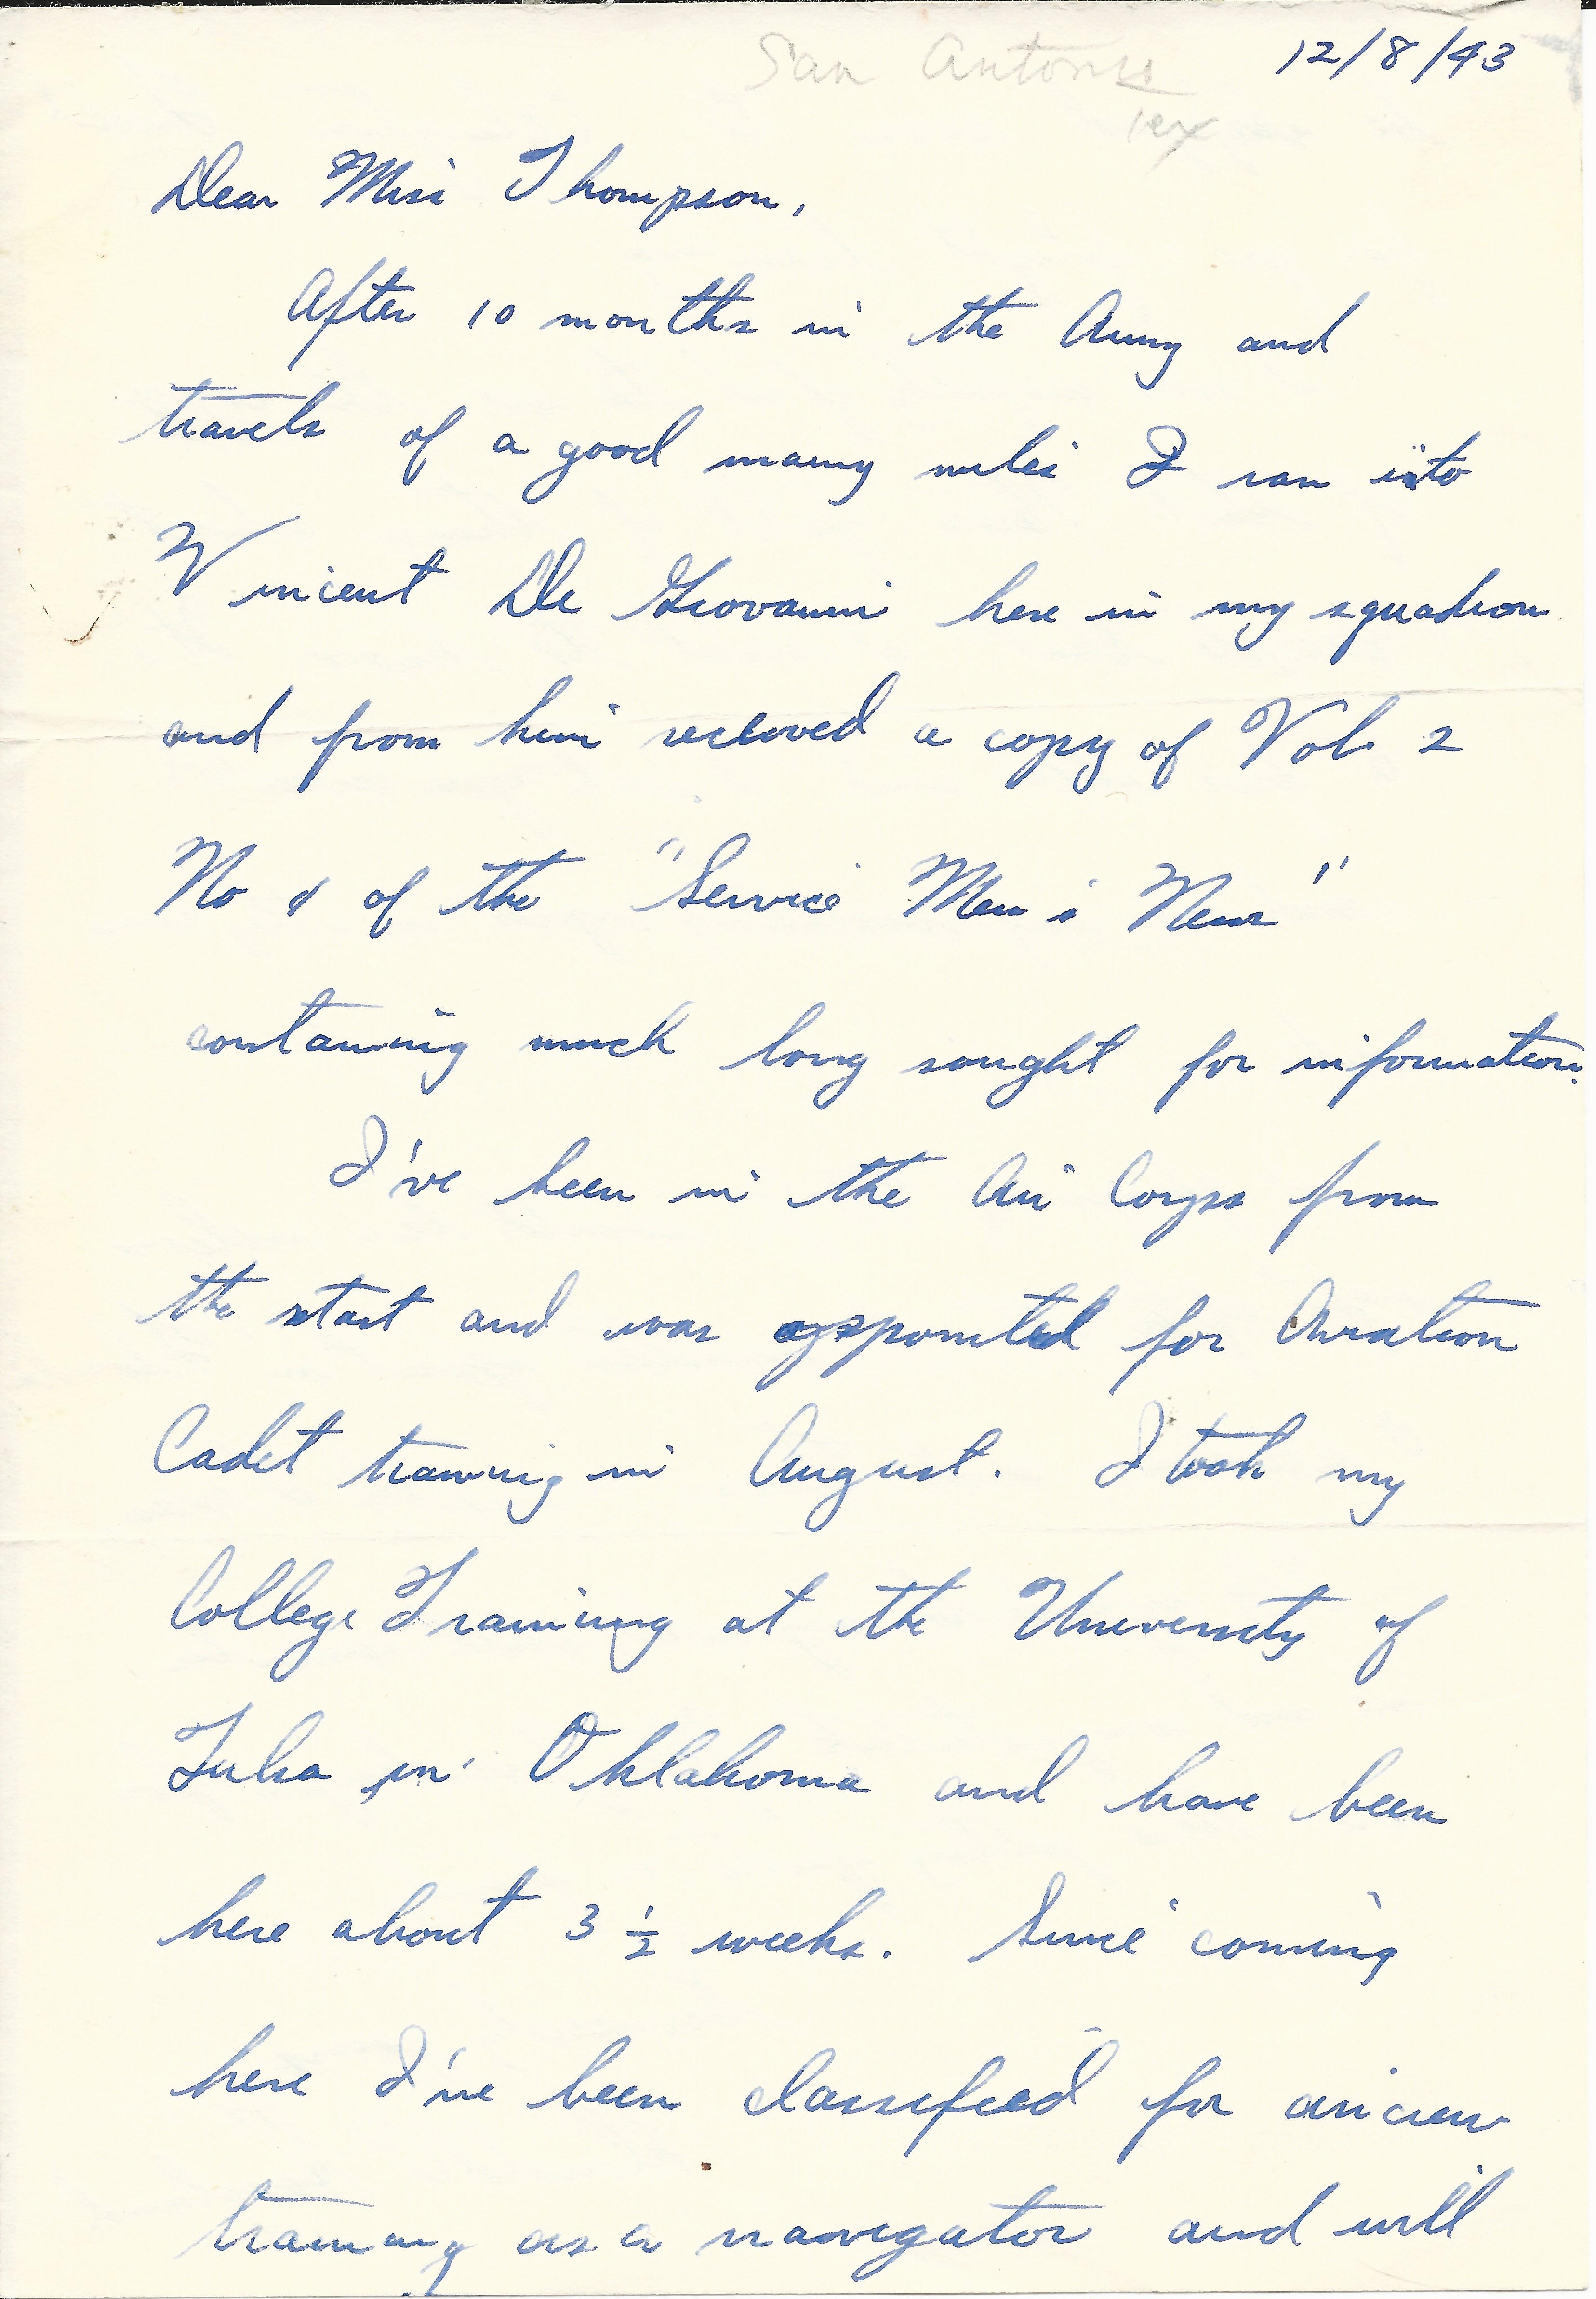 San Antonio
Tex
12/8/43
Dear Miss Thompson,
After 10 months in the Army and
travels of a good many miles I ran into
Vincent De Giovanni here in my squadron
and from him received a copy of Vol. 2
No of the "Service Men's News"
containing much long sought for information.
I've been in the Air Corps from
the start and was appointed for Aviation
Cadet training in August. I took my
College Training at the University of
Tulsa in Oklahoma and have been
here about 3 ½ weeks. Since coming
here I've been classified for aircrew
training as a navigator and will